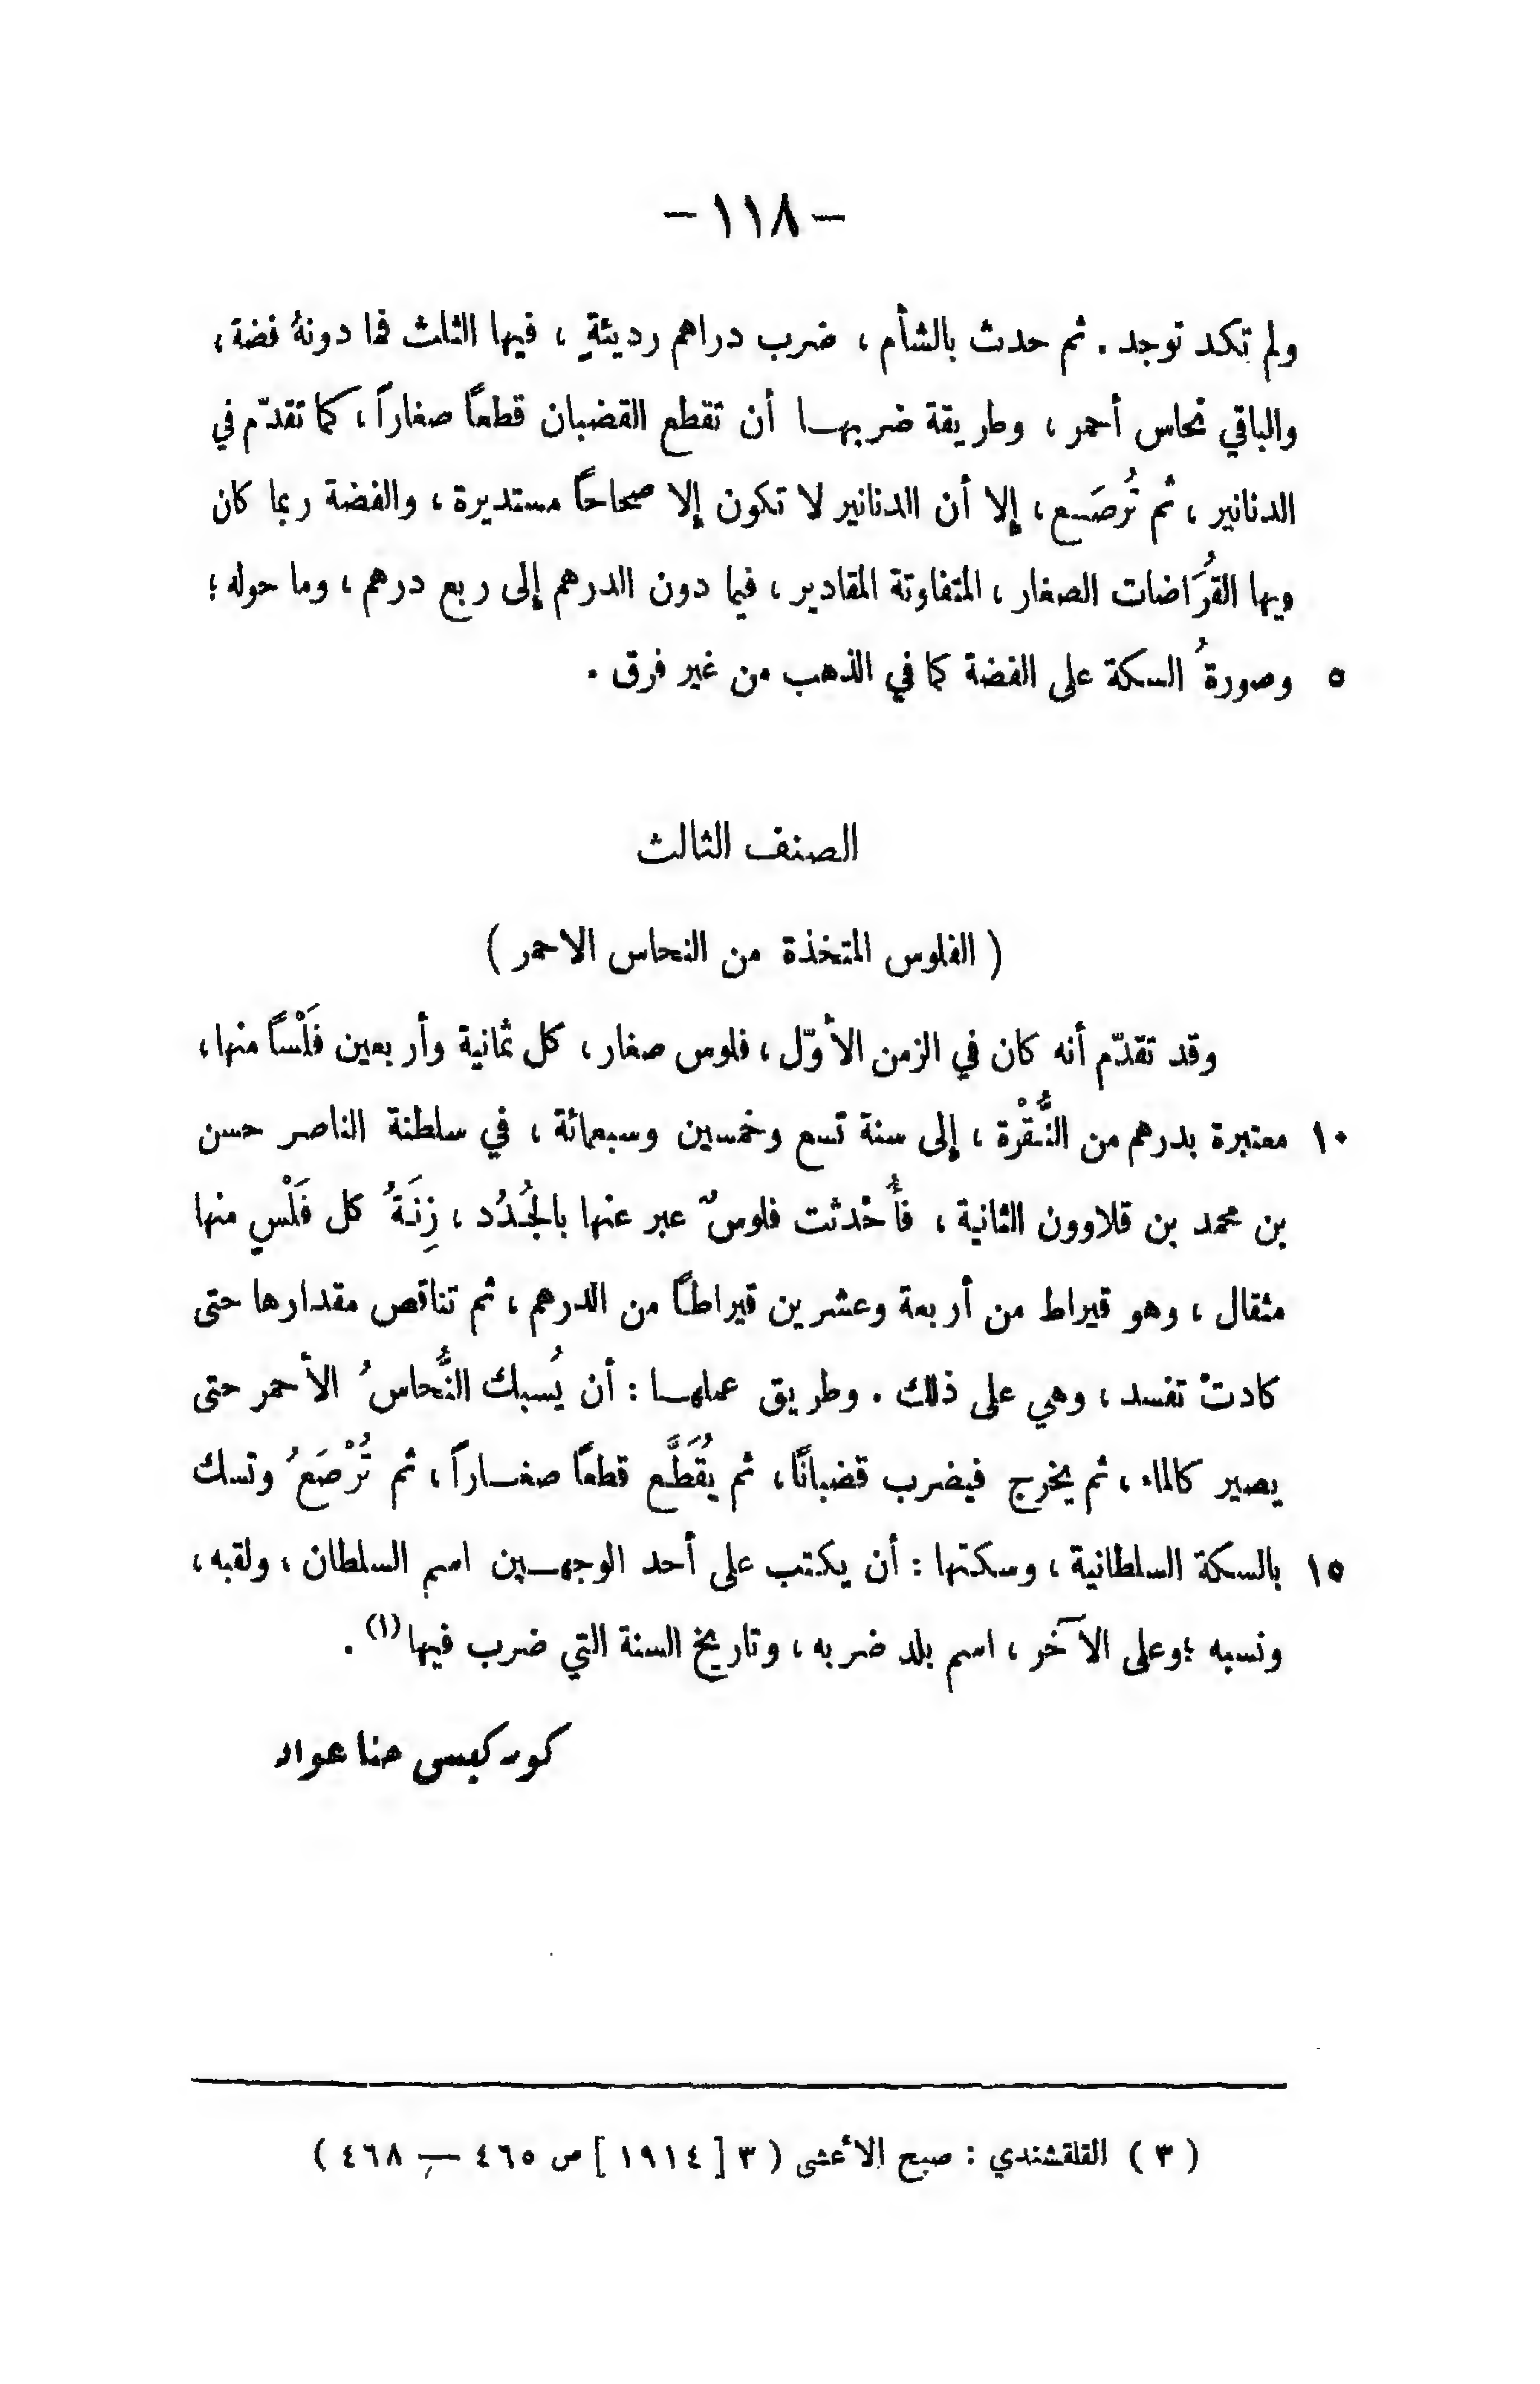 — ١١٨ —
ولم تكد توجد . ثم حدث بالشأم ، ضرب دراهم رديئةٍ ، فيها الثلث فما دونهُ فضة ،
والباقي نحاس أحمر ، وطريقة ضربها أن تقطع القضبان قطعاً صغاراً ، كما تقدّم في
الدنانير ، ثم تُرصَع ، إلا أن الدنانير لا تكون إلا صحاحاً مستديرة ، والفضة ربما كان
ويها القُرَاضات الصغار ، المتفاوتة المقادير ، فيما دون الدرهم إلى ربع درهم ، وما حوله ؛
٥ وصورةُ السكة على الفضة كما في الذهب من غير فرق .
الصنف الثالث
( الفلوس المتخذة من النحاس الاحمر )
وقد تقدّم أنه كان في الزمن الأوّل ، فلوس صغار ، كل ثمانية وأربعين فَلْساً منها ،
١٠ معتبرة بدرهم من النُّقْرة ، إلى سنة تسع وخمسين وسبعمائة ، في سلطنة الناصر حسن
بن محمد بن قلاوون الثانية ، فأُحْدثت فلوسٌ عبر عنها بالجُدُد ، زِنَةُ كل فَلْسٍ منها
مثقال ، وهو قيراط من أربعة وعشرين قيراطاً من الدرهم ، ثم تناقص مقدارها حتى
كادتْ تفسد ، وهي على ذلك . وطريق عملها : أن يُسبك النُّحاسُ الأحمر حتى
يصير كالماء ، ثم يخرج فيضرب قضباناً ، ثم يُقَطَّع قطعاً صغاراً ، ثم تُرْصَعُ وتسك
١٥ بالسكة السلطانية ، وسكتها : أن يكتب على أحد الوجهين اسم السلطان ، ولقبه ،
ونسبه ؛وعلى الآخر ، اسم بلد ضربه ، وتاريخ السنة التي ضرب فيها(١) .
كوركيس حنا عواد
( ٣ ) القلقشندي : صبح الأعشى ( ٣ [ ١٩١٤ ] ص ٤٦٥ — ٤٦٨ )